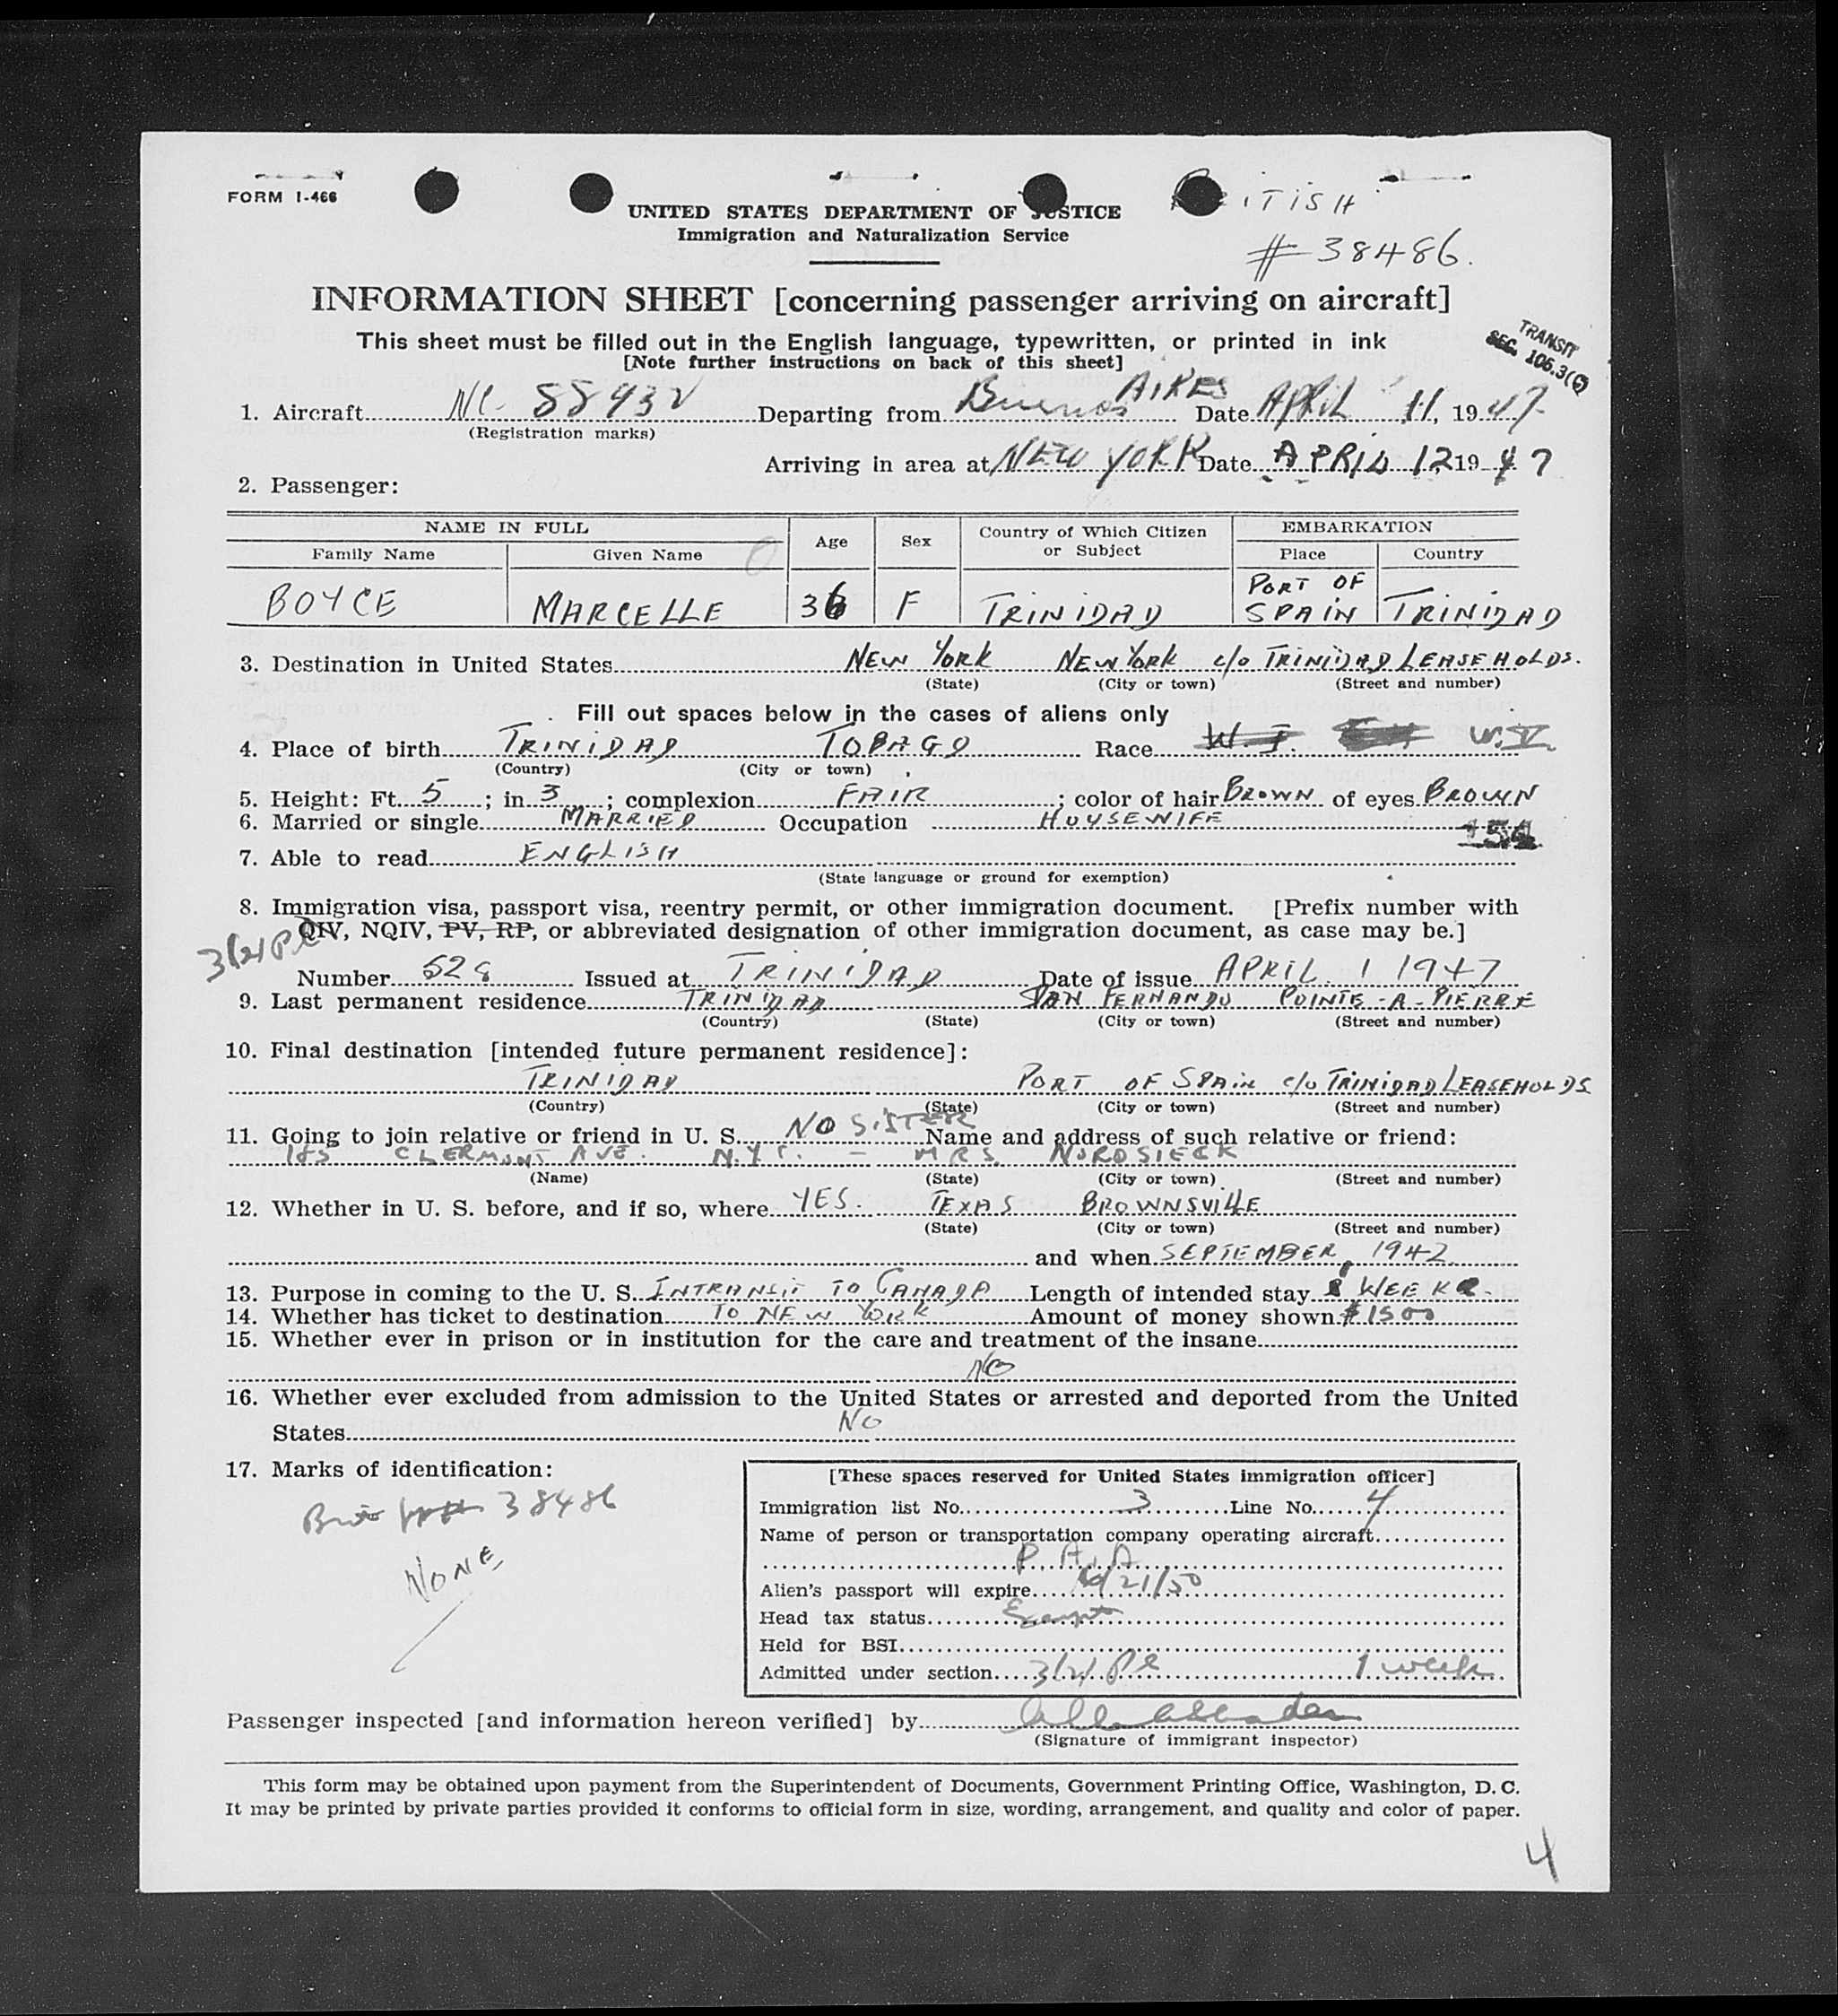 FORM I-466
UNITED STATES DEPARTMENT OF JUSTICE
Immigration and Naturalization Service
BRITISH
# 38486.
INFORMATION SHEET [concerning passenger arriving on aircraft]
This sheet must be filled out in the English language, typewritten, or printed in ink
[Note further instructions on back of this sheet]
TRANSIT
SEC. 106.3(
1. Aircraft NC- 88932 Departing from Buenos AIRES Date APRIL 11, 1947
(Registration marks)
Arriving in area at NEW YORK Date APRIL 12 1947
2. Passenger:
NAME IN FULL Age Sex Country of Which Citizen or Subject EMBARKATION
Family Name Given Name Place Country
BOYCE MARCELLE 36 F TRINIDAD PORT OF SPAIN TRINIDAD
3. Destination in United States NEW YORK NEW YORK c/o TRINIDAD LEASEHOLDS.
(State) (City or town) (Street and number)
Fill out spaces below in the cases of aliens only
4. Place of birth TRINIDAD TOBAGO Race W.I.
(Country) (City or town)
5. Height: Ft. 5; in. 3; complexion FAIR; color of hair BROWN of eyes BROWN
6. Married or single MARRIED Occupation HOUSEWIFE
7. Able to read ENGLISH
(State language or ground for exemption)
8. Immigration visa, passport visa, reentry permit, or other immigration document. [Prefix number with
QIV, NQIV, PV, RP, or abbreviated designation of other immigration document, as case may be.]
3(2) PL
Number 528 Issued at TRINIDAD Date of issue APRIL 1 1947
9. Last permanent residence TRINIDAD SAN FERNANDO POINTE-A-PIERRE
(Country) (State) (City or town) (Street and number)
10. Final destination [intended future permanent residence]:
TRINIDAD PORT OF SPAIN c/o TRINIDAD LEASEHOLDS
(Country) (State) (City or town) (Street and number)
11. Going to join relative or friend in U. S. NO SISTER Name and address of such relative or friend:
185 CLERMONT AVE. N.Y.C. - MRS. NORDSIECK
(Name) (State) (City or town) (Street and number)
12. Whether in U. S. before, and if so, where YES. TEXAS BROWNSVILLE
(State) (City or town) (Street and number)
and when SEPTEMBER, 1942
13. Purpose in coming to the U. S. INTRANSIT TO CANADA Length of intended stay 1 WEEK
14. Whether has ticket to destination TO NEW YORK Amount of money shown $1500
15. Whether ever in prison or in institution for the care and treatment of the insane
NO
16. Whether ever excluded from admission to the United States or arrested and deported from the United
States NO
17. Marks of identification:
38486
NONE
[These spaces reserved for United States immigration officer]
Immigration list No. 3 Line No. 4
Name of person or transportation company operating aircraft
P. A. A
Alien's passport will expire 10/21/50
Head tax status Exempt
Held for BSI
Admitted under section 3(2) PL 1 week
Passenger inspected [and information hereon verified] by
(Signature of immigrant inspector)
This form may be obtained upon payment from the Superintendent of Documents, Government Printing Office, Washington, D. C.
It may be printed by private parties provided it conforms to official form in size, wording, arrangement, and quality and color of paper.
4